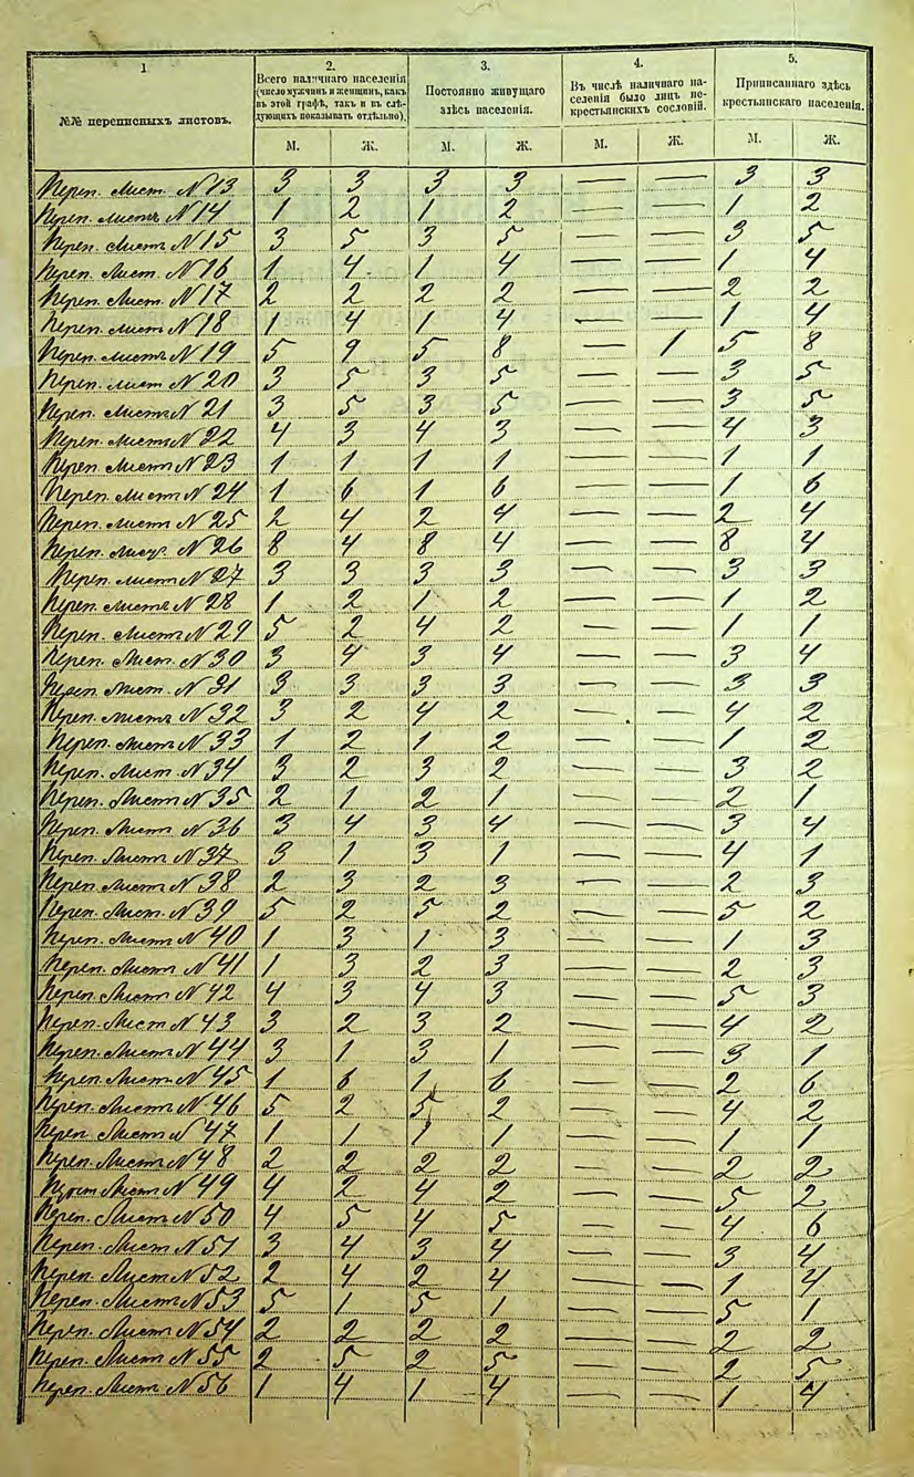 1
№№ переписныхъ листовъ.
2.
Всего наличнаго населенія
(число мужчинъ и женщинъ, какъ
въ этой графѣ, такъ и въ слѣ-
дующихъ показывать отдѣльно).
3.
Постоянно живущаго
здѣсь населенія.
4.
Въ числѣ наличнаго на-
селенія было лицъ не-
крестьянскихъ сословій.
5.
Приписаннаго здѣсь
крестьянскаго населенія.
М. Ж. М. Ж. М. Ж. М. Ж.
Переп. лист. N 13 3 3 3 3 — — 3 3
Переп. листъ N 14 1 2 1 2 — — 1 2
Переп. листъ N 15 3 5 3 5 — — 3 5
Переп. Лист. N 16 1 4 1 4 — — 1 4
Переп. Лист. N 17 2 2 2 2 — — 2 2
Переп. лист N 18 1 4 1 4 — — 1 4
Переп. листъ N 19 5 9 5 8 — 1 5 8
Переп. лист N 20 3 5 3 5 — — 3 5
Переп. листъ N 21 3 5 3 5 — — 3 5
Переп. листъ N 22 4 3 4 3 — — 4 3
Переп. Листъ N 23 1 1 1 1 — — 1 1
Переп. листъ N 24 1 6 1 6 — — 1 6
Переп. листъ N 25 2 4 2 4 — — 2 4
Переп. лист. N 26 8 4 8 4 — — 8 4
Переп. листъ N 27 3 3 3 3 — — 3 3
Переп. листъ N 28 1 2 1 2 — — 1 2
Переп. листъ N 29 5 2 4 2 — — 1 1
Переп. Лист. N 30 3 4 3 4 — — 3 4
Переп. Лист. N 31 3 3 3 3 — — 3 3
Переп. листъ N 32 3 2 4 2 — — 4 2
Переп. листъ N 33 1 2 1 2 — — 1 2
Переп. лист. N 34 3 2 3 2 — — 3 2
Переп. Листъ N 35 2 1 2 1 — — 2 1
Переп. Листъ N 36 3 4 3 4 — — 3 4
Переп. Листъ N 37 3 1 3 1 — — 4 1
Переп. листъ N 38 2 3 2 3 — — 2 3
Переп. Лист. N 39 5 2 5 2 — — 5 2
Переп. листъ N 40 1 3 1 3 — — 1 3
Переп. Листъ N 41 1 3 2 3 — — 2 3
Переп. Листъ N 42 4 3 4 3 — — 5 3
Переп. Лист N 43 3 2 3 2 — — 4 2
Переп. Листъ N 44 3 1 3 1 — — 3 1
Переп. Листъ N 45 1 6 1 6 — — 2 6
Переп. Листъ N 46 5 2 5 2 — — 4 2
Переп Листъ N 47 1 1 1 1 — — 1 1
Переп. Листъ N 48 2 2 2 2 — — 2 2
Переп Листъ N 49 4 2 4 2 — — 5 2
Переп. Листъ N 50 4 5 4 5 — — 4 6
Переп. Лист N 51 3 4 3 4 — — 3 4
Переп. Лист N 52 2 4 2 4 — — 1 4
Переп. Листъ N 53 5 1 5 1 — — 5 1
Переп. Лист N 54 2 2 2 2 — — 2 2
Переп. Лист N 55 2 5 2 5 — — 2 5
Переп. Листъ N 56 1 4 1 4 — — 1 4